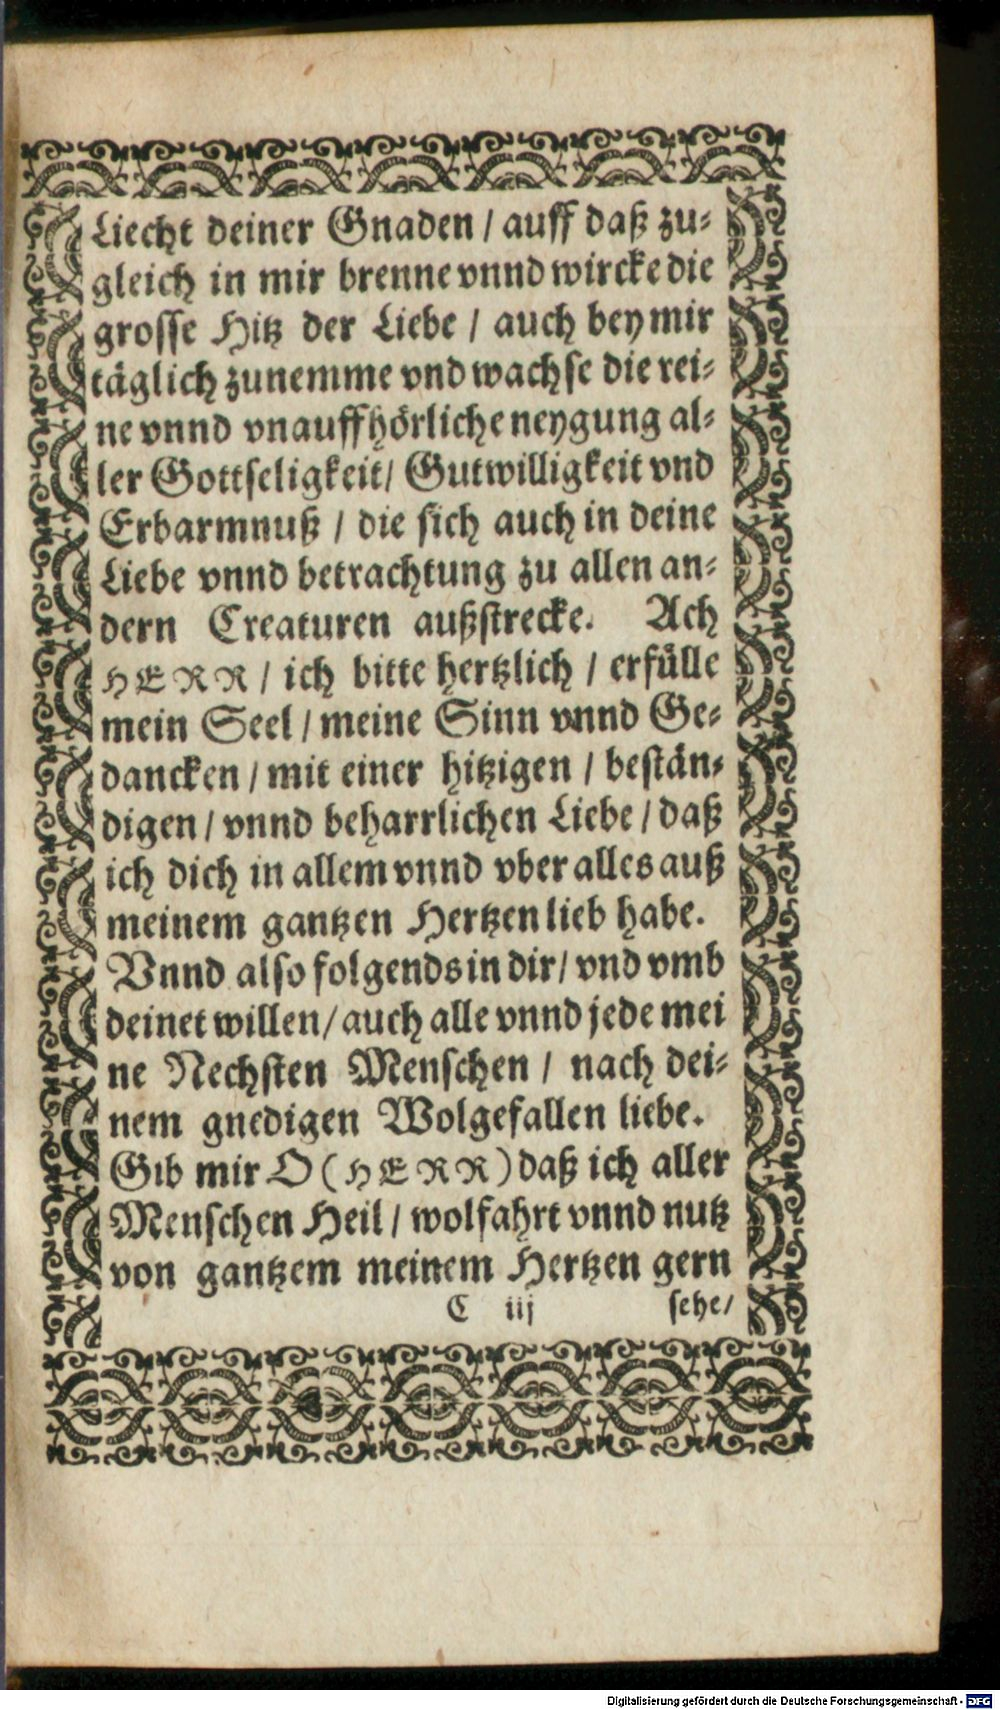 Liecht deiner Gnaden / auff daß zu⸗
gleich in mir brenne vnnd wircke die
grosse Hitz der Liebe / auch bey mir
täglich zunemme vnd wachse die rei⸗
ne vnnd vnauffhörliche neygung al⸗
ler Gottseligkeit/ Gutwilligkeit vnd
Erbarmnuß / die sich auch in deine
Liebe vnnd betrachtung zu allen an⸗
dern Creaturen außstrecke. Ach
HERR / ich bitte hertzlich / erfülle
mein Seel / meine Sinn vnnd Ge⸗
dancken / mit einer hitzigen / bestän⸗
digen / vnnd beharrlichen Liebe / daß
ich dich in allem vnnd vber alles auß
meinem gantzen Hertzen lieb habe.
Vnnd also folgends in dir/ vnd vmb
deinet willen/ auch alle vnnd jede mei
ne Nechsten Menschen / nach dei⸗
nem gnedigen Wolgefallen liebe.
Gib mir O (HERR) daß ich aller
Menschen Heil / wolfahrt vnnd nutz
von gantzem meinem Hertzen gern
C iij sehe/
Digitalisierung gefördert durch die Deutsche Forschungsgemeinschaft - DFG